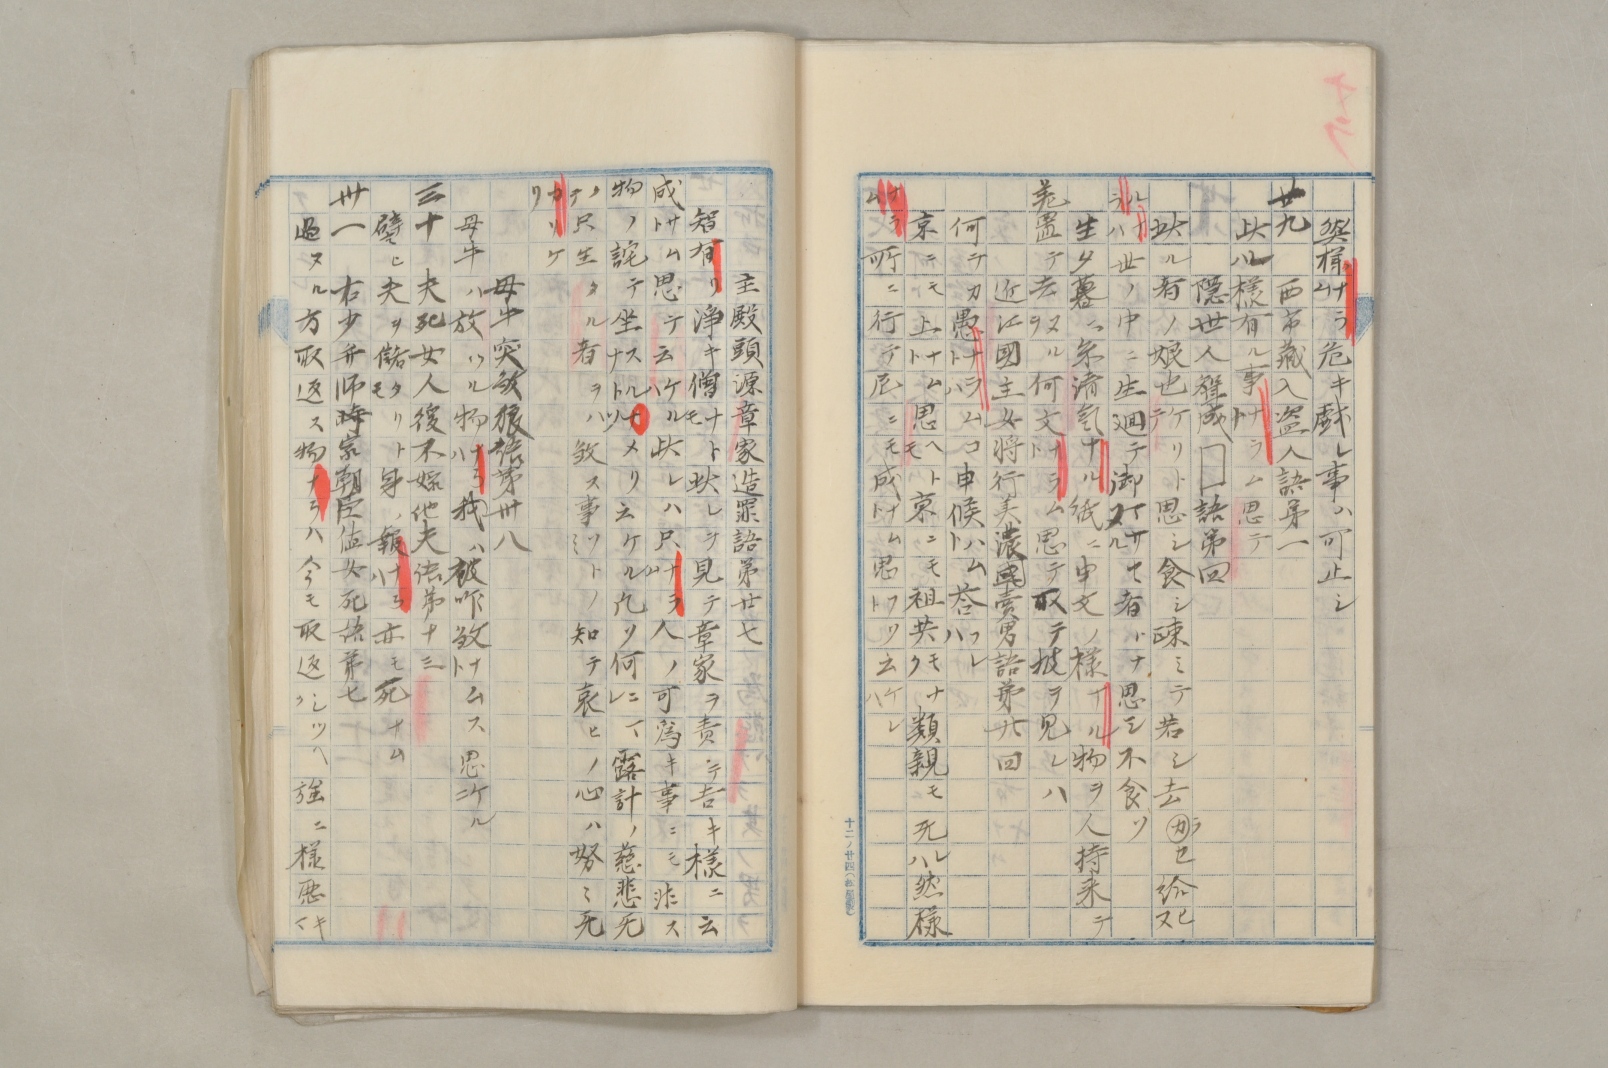 危キ戯レ事ハ可止シ
廿九 西市蔵入盗人語第一
此ハ様有ル事ナラムト思テ
隠世人聟成□語第四
此ル者ノ娘也ケリト思シ食シ疎ミテ若シ去ラセ給ヒヌ
ルナラハ世ノ中ニ生廻テ御マサセ者ナド思シ不食ソ
生タ暮ニ糸清気ナル紙ニ申文ノ様ナル物ヲ人持来テ
差置テ去ヌルヲ何文ナラムト思テ取テ披テ見レハ
近江國主女将行美濃國売男語第廿四
何テカ愚ナラムトハコ申候ハムト答フレハ
京ニモ上ナムト思ヘトモ京ニモ祖共モナク類親モ死ハレ然様
ナラム所ニ行テ尼ニモ成ナムト思フソト云ケレハ
主殿頭源章家造罪語第廿七
智有リ浄キ僧ナトモ此レヲ見テ章家ヲ責テ吉キ様ニ云
成サムト思テ云ケルハ此レハ只ナラム人ノ可為キ事ニモ非ス
物ノ詫テ坐スルナメリナトソ云ケル凡ソ何ニマレ露計ノ慈悲无
テ只生タル者ヲハ殺ス事ソトノミ知テ哀ヒノ心ハ努ミ无
カリケリ
母牛突殺狼語第卅八
母牛ハ放ツル物ナラハ我レハ被咋殺ナムスト思ケルニ
三十 夫死女人後不嫁他夫語第十三
譬ヒ夫ヲ儲タリトモ身ノ報ナラハ亦モ死ナム
卅一 右少弁師家朝臣値女死語第七
過ヌル方取返ス物ナラハ今モ取返シツヘ強ニ様悪キマ
十二ノ廿四